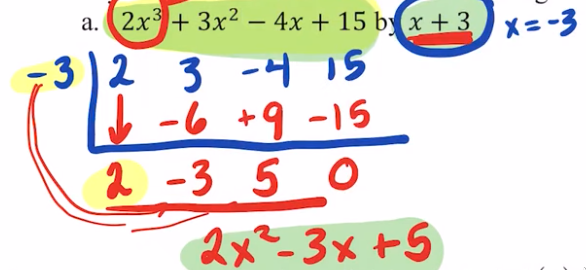 a. 2x³ + 3x² − 4x + 15 by x + 3 x = -3
-3 2 3 -4 15
↓ -6 +9 -15
2 -3 5 0
2x² - 3x + 5